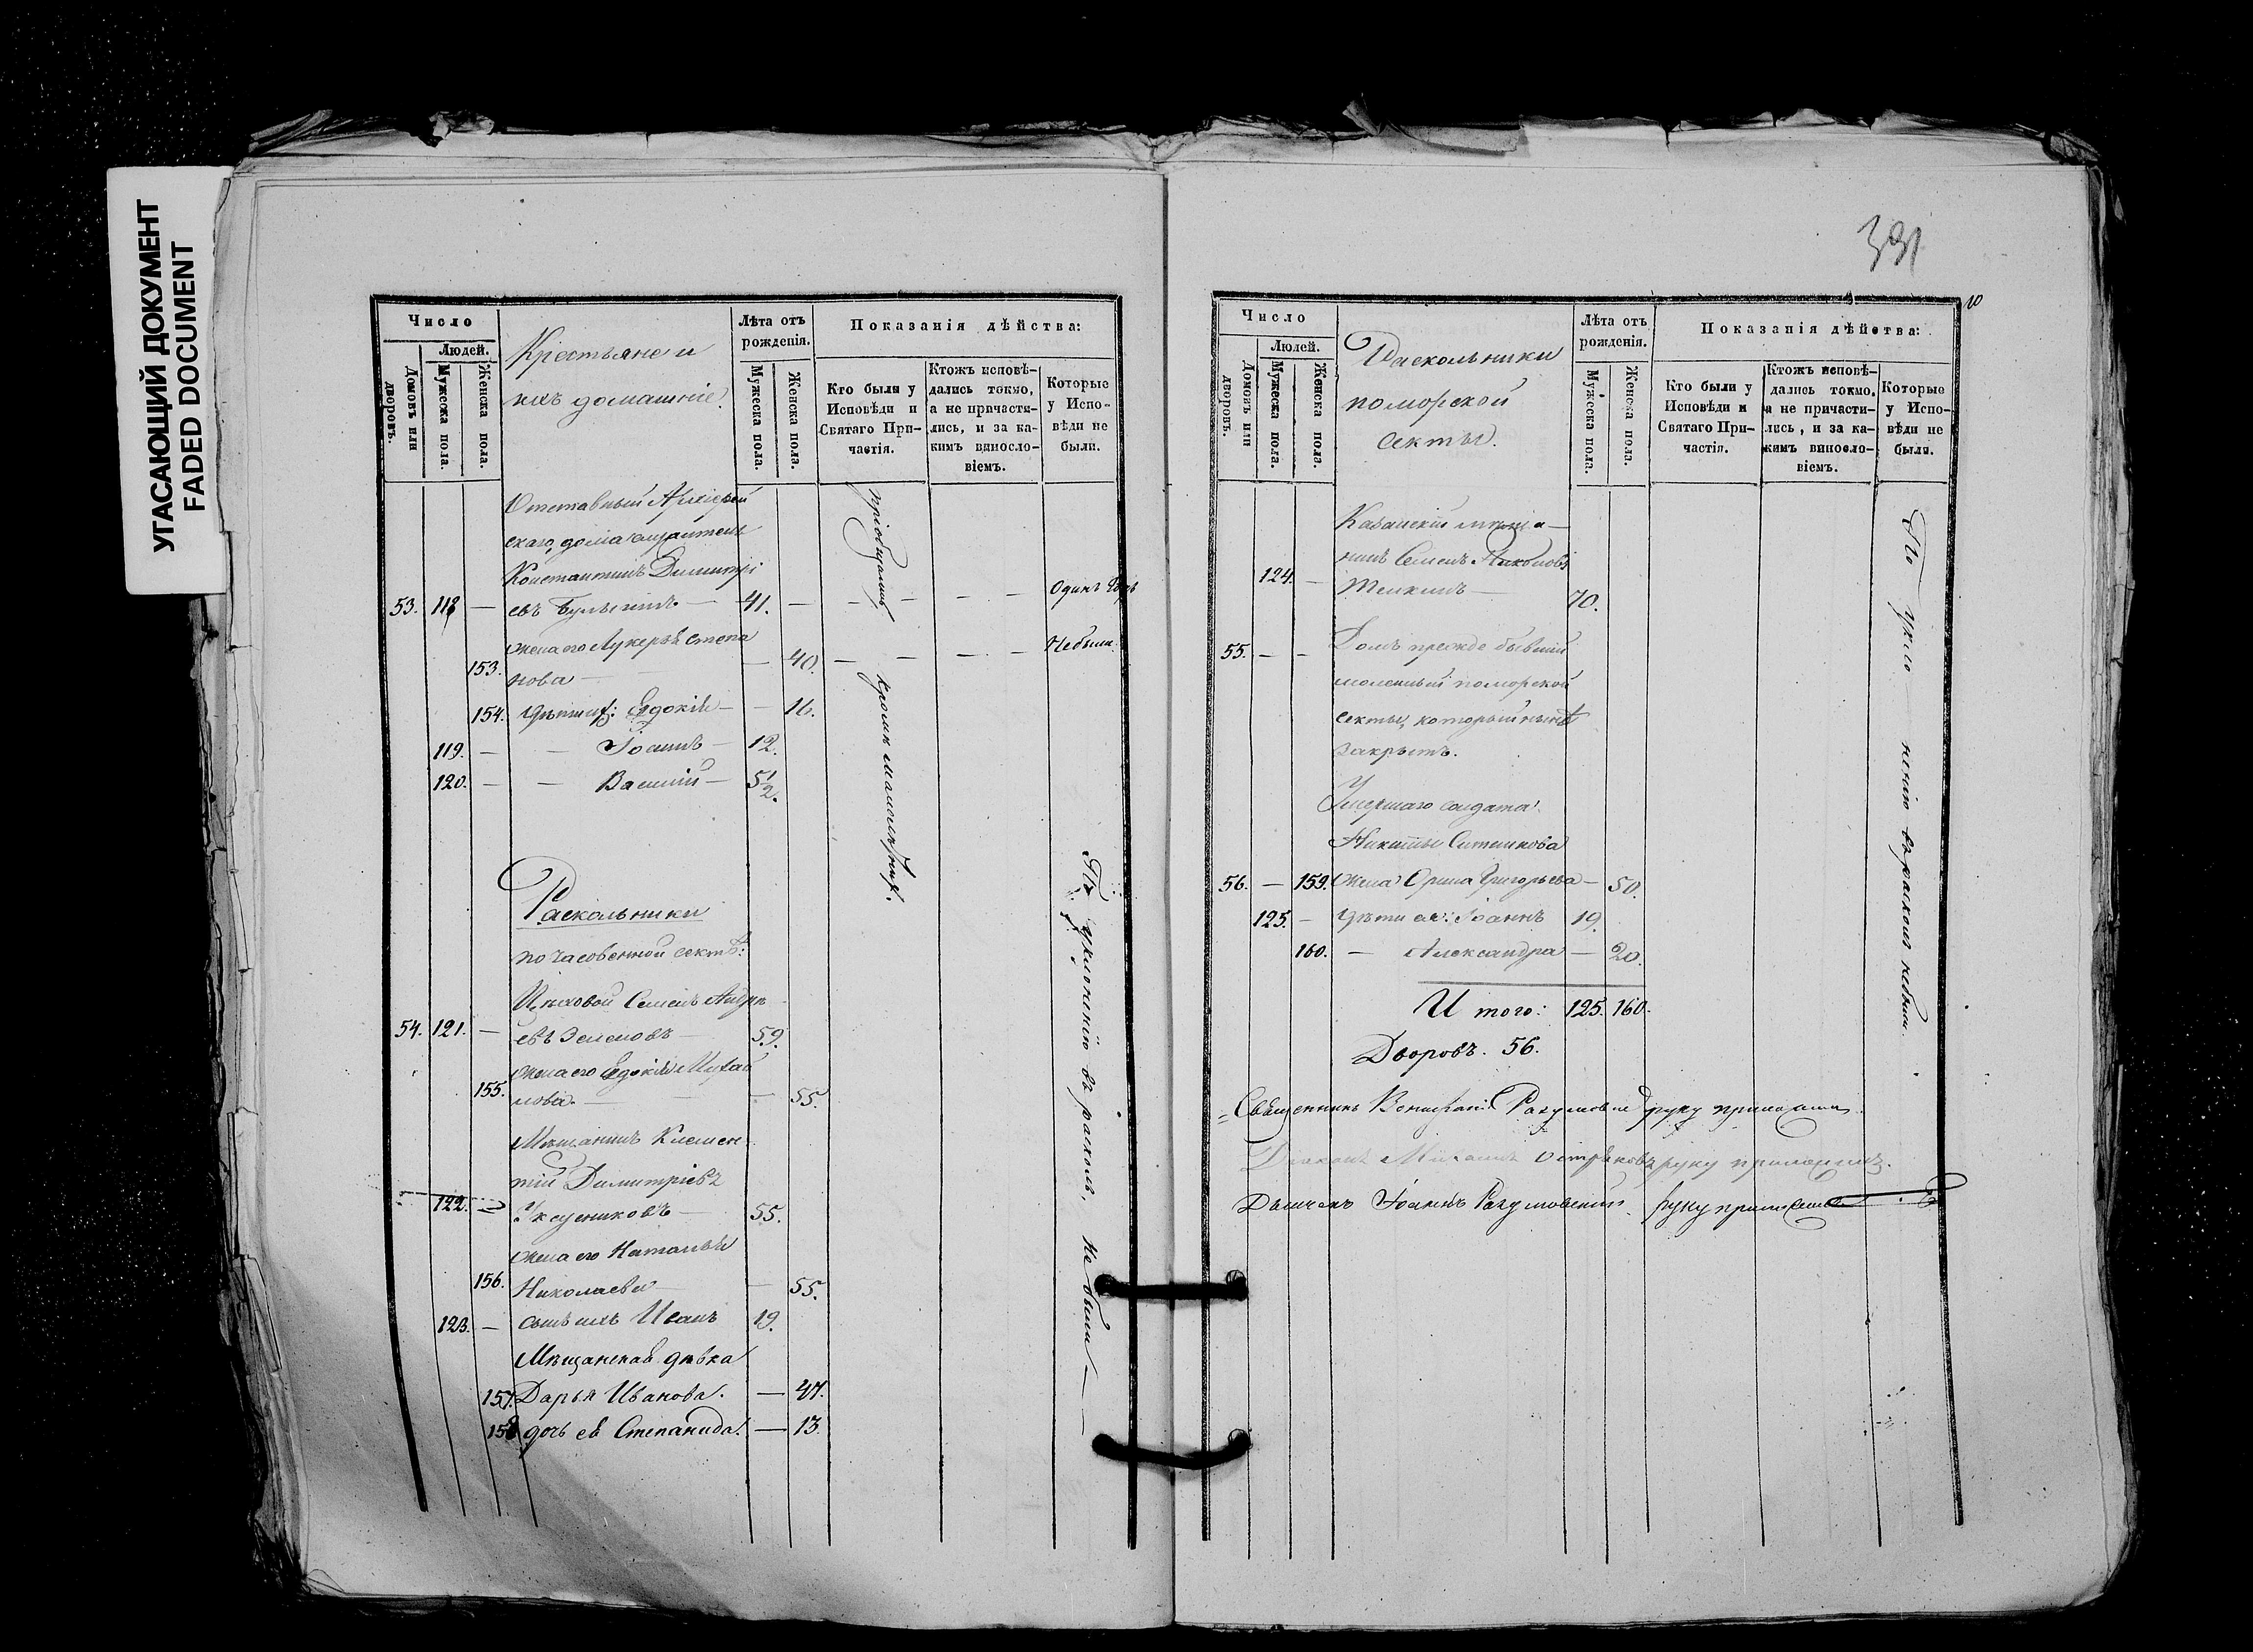 УГАСАЮЩИЙ ДОКУМЕНТ
FADED DOCUMENT
Число
Людей.
Домовъ или дворовъ.
Мужеска пола.
Женска пола.
Крестьяне и
ихъ домашніе.
Лѣта отъ рожденія.
Мужеска пола.
Женска пола.
Показанія дѣйства:
Кто были у Исповѣди и Святаго При-частія.
Ктожъ исповѣ-дались токмо, а не причасти-лись, и за ка-кимъ винословіемъ.
Которые у Испо-вѣди не были.
Отставный Архіерей
скаго дома служитель
Константинъ Димитрі
53. 118 — евъ — 41. — Одинъ
жена его Лукерья Степа
153. нова — — 40. — Небыли.
154. дѣти их: Евдокія — — 16.
119. — — Іоаннъ — 12.
120. — — Василій — 5 1/2.
пріобщались кромѣ малолѣтних.
Раскольники
по часовенной сектѣ:
Цеховой Семенъ Андре
54. 121. — евъ — 59.
жена его Евдокія Михай
155. лова. — — 55.
Мѣщанинъ Клемен
тій Димитріевъ
122. — Уксусниковъ — 55.
жена его Наталья
156. Николаева — — 55.
123. — сынъ ихъ Иванъ 19.
Мѣщанская дѣвка
157. Дарья Иванова. — 47.
158 дочь ея Степанида. — 13.
По уклоненію въ расколъ, не были —
391
10
Число
Людей.
Домовъ или дворовъ.
Мужеска пола.
Женска пола.
Раскольники
поморской
секты.
Лѣта отъ рожденія.
Мужеска пола.
Женска пола.
Показанія дѣйства:
Кто были у Исповѣди и Святаго При-частія.
Ктожъ исповѣ-дались токмо, а не причасти-лись, и за ка-кимъ винословіемъ.
Которые у Испо-вѣди не были.
Казанскій мѣща—
нинъ Семенъ
124. — 70.
55. — — Домъ прежде бывшій
моленный поморской
секты, который нынѣ
закрытъ.
Умершаго солдата
Никиты Ситникова
56. — 159. жена Орина Григорьева — 50.
125. — дѣти ея: Іоаннъ 19.
160. — Александра — 20.
И того: 125. 160.
Дворовъ. 56.
По уклоненію въ расколъ небыли.
Священникъ Разумовъ руку приложилъ
Діаконъ Михаилъ руку приложилъ.
Дьячекъ Іоаннъ Разумовскій руку приложилъ